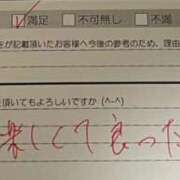 ☑満足 □不可無し □不満
を記載頂いたお客様へ今後の参考のため、理由
頂いてもよろしいですか (^-^)
楽しくて良った